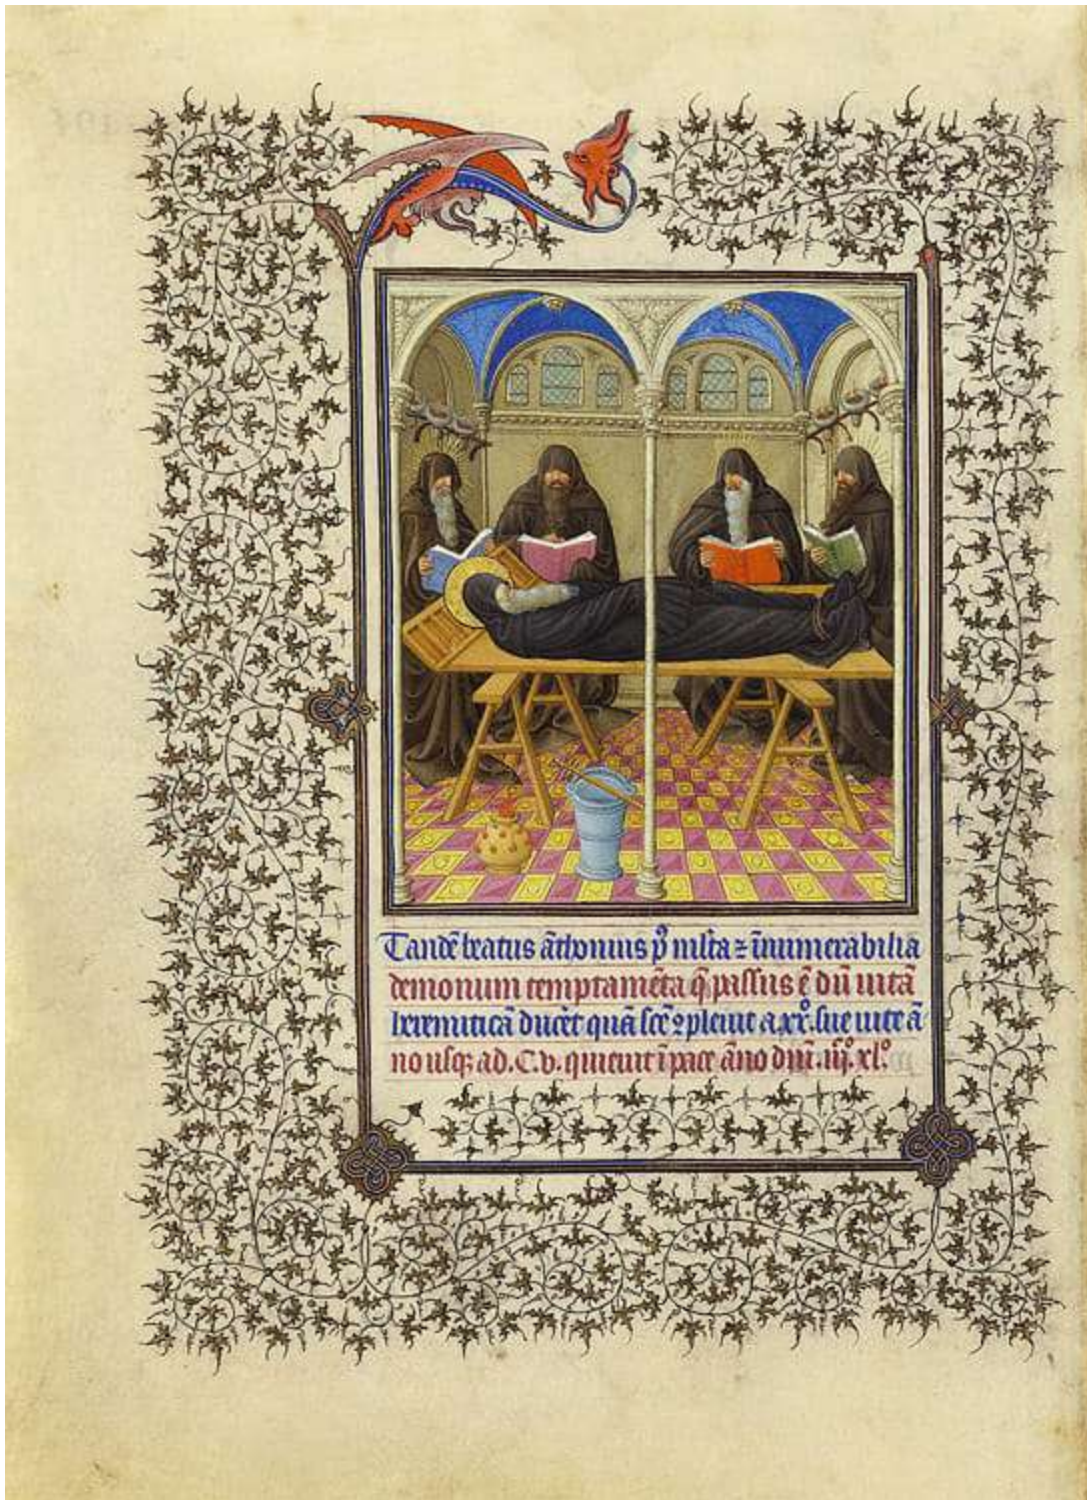 Tandē beatus āthonius pꝰ mlta ⁊ īnumerabilia
demonum temptamēta q̄ passus ē dū uitā
heremiticā ducēt quā scē ꝯpleuit a .xxº. sue uite ā
no usqꝫ ad .C.v. quieuit ī pace āno dn̄i .iijº. xlº.